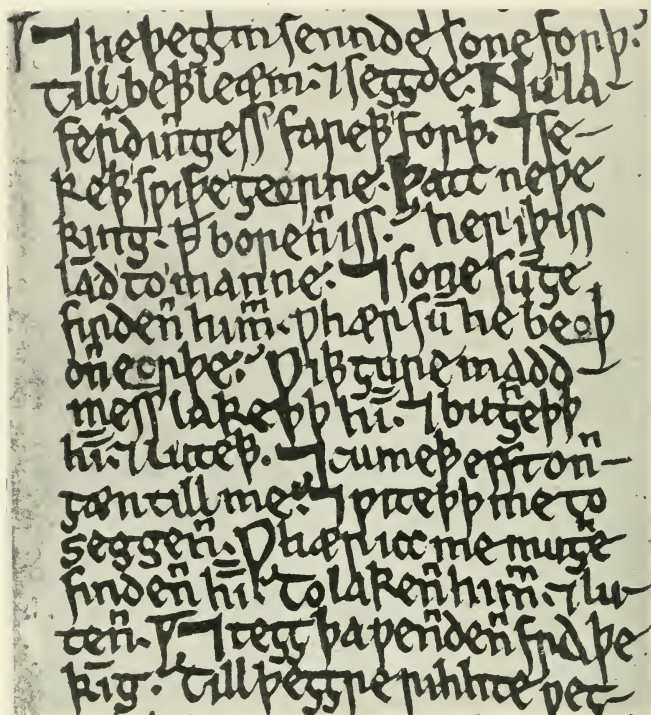 ⁊ he þeȝȝm sennde sone forþ.
till beþþleæm. ⁊ seggde. Nu la-
ferrdinngess fareþþ forþ. ⁊ se-
keþþ swiþe ȝeorne. þatt neƿe
king. þ̄ borenn iss. her i þiss
land to manne. ⁊ sone sum̄ ȝe
findenn himm. ƿhær sum̄ he beoþ
onn eorþe. ƿiþþ ȝure madd-
mess lakeþþ hīm. ⁊ buȝheþþ
hīm. ⁊ luteþþ. ⁊ cumeþþ efft onn-
ȝæn till me. ⁊ ƿiteþþ me to
seggenn. ƿhær icc me muȝhe
findenn hīm. To lakenn himm. ⁊ lu-
tenn. ¶ ⁊ teȝȝ þa ƿenndenn fra þe
king. Till þeȝȝre rihhte ƿeȝ-